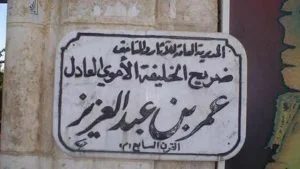 المديرية العامة للآثار والمتاحف
ضريح الخليفة الأموي العادل
عمر بن عبد العزيز
القرن السابع م